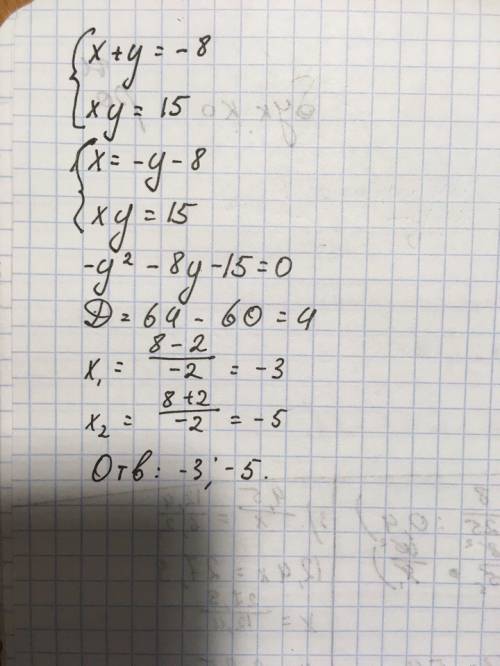 x+y = -8
xy = 15
x = -y - 8
xy = 15
-y² - 8y - 15 = 0
D = 64 - 60 = 4
x₁ = (8 - 2)/(-2) = -3
x₂ = (8 + 2)/(-2) = -5
Отв: -3; -5.